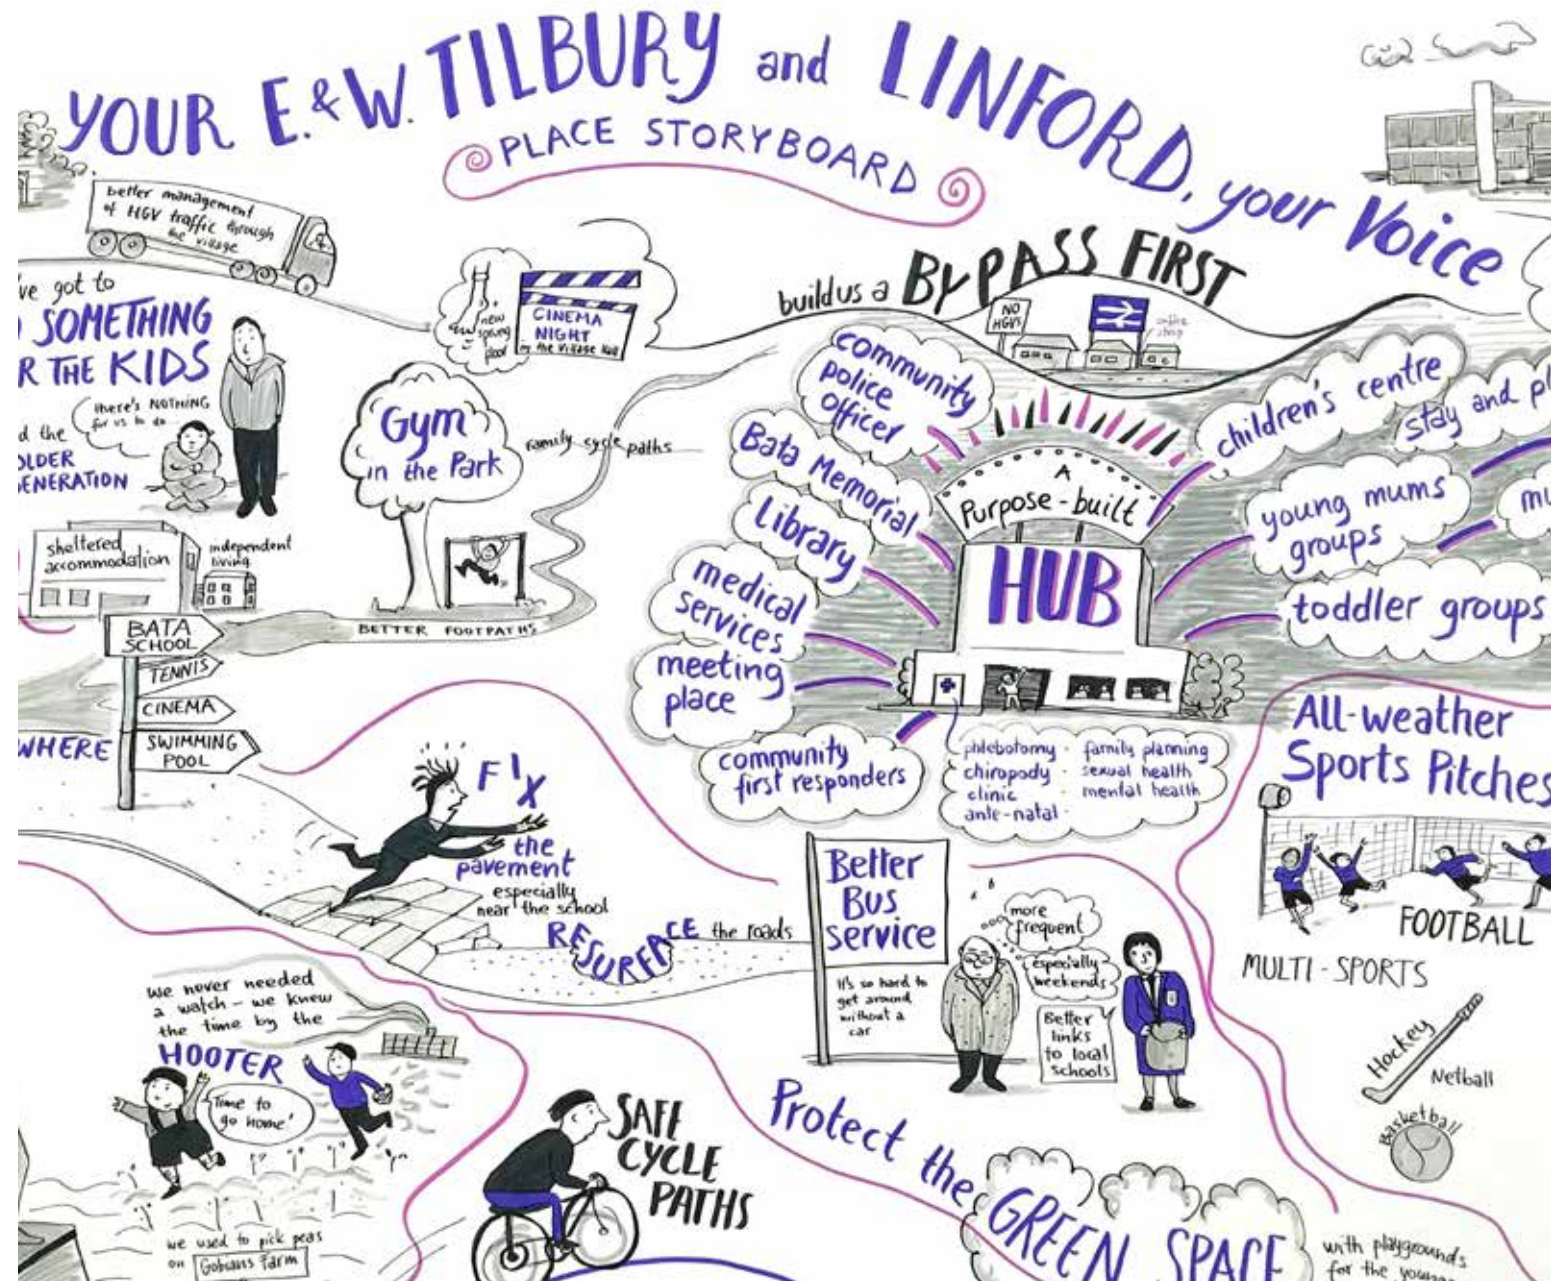 YOUR E. & W. TILBURY and LINFORD, your Voice
PLACE STORYBOARD
better management
of HGV traffic through
the village
've got to
SOMETHING
R THE KIDS
there's NOTHING
for us to do
d the
OLDER
GENERATION
sheltered
accommodation
independent
living
new
pool
CINEMA
NIGHT
in the Village Hall
Gym
in the Park
Family cycle paths
BETTER FOOTPATHS
BATA
SCHOOL
TENNIS
CINEMA
SWIMMING
POOL
WHERE
build us a BYPASS FIRST
NO
HGVS
community
police
officer
Bata Memorial
Library
medical
services
meeting
place
community
first responders
A
Purpose-built
HUB
phlebotomy · family planning
chiropody · sexual health
clinic · mental health
ante-natal ·
children's centre
stay and pl
young mums
groups
mu
toddler groups
All-weather
Sports Pitches
FOOTBALL
MULTI-SPORTS
Hockey
Netball
Basketball
FIX
the
pavement
especially
near the school
RESURFACE the roads
Better
Bus
service
It's so hard to
get around
without a
car
more
frequent
especially
weekends
Better
links
to local
schools
we never needed
a watch – we knew
the time by the
HOOTER
Time to
go home!
we used to pick peas
on Gobians Farm
SAFE
CYCLE
PATHS
Protect the
GREEN SPACE
with playgrounds
for the younge